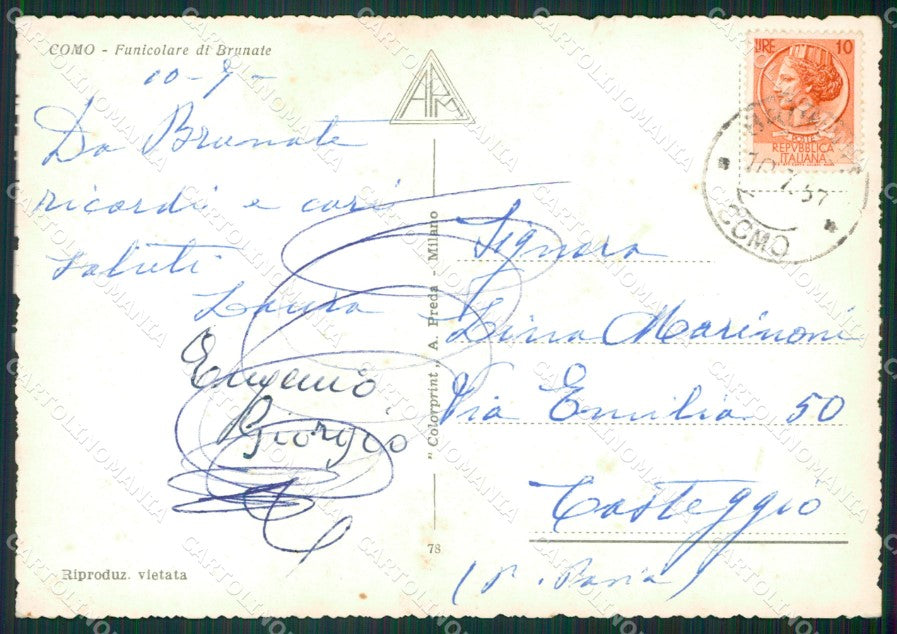 COMO - Funicolare di Brunate
10-7-
Da Brunate
ricordi e cari
saluti
Laura
Eugenio
Giorgio
Riproduz. vietata
"Colorprint" A. Preda - Milano
78
APM
LIRE 10
POSTE
REPVBBLICA
ITALIANA
BRUNATE
10.7.57
COMO
Signora
Lina Marinoni
Via Emilia 50
Casteggio
(P. Pavia)
CARTOLINOMANIA